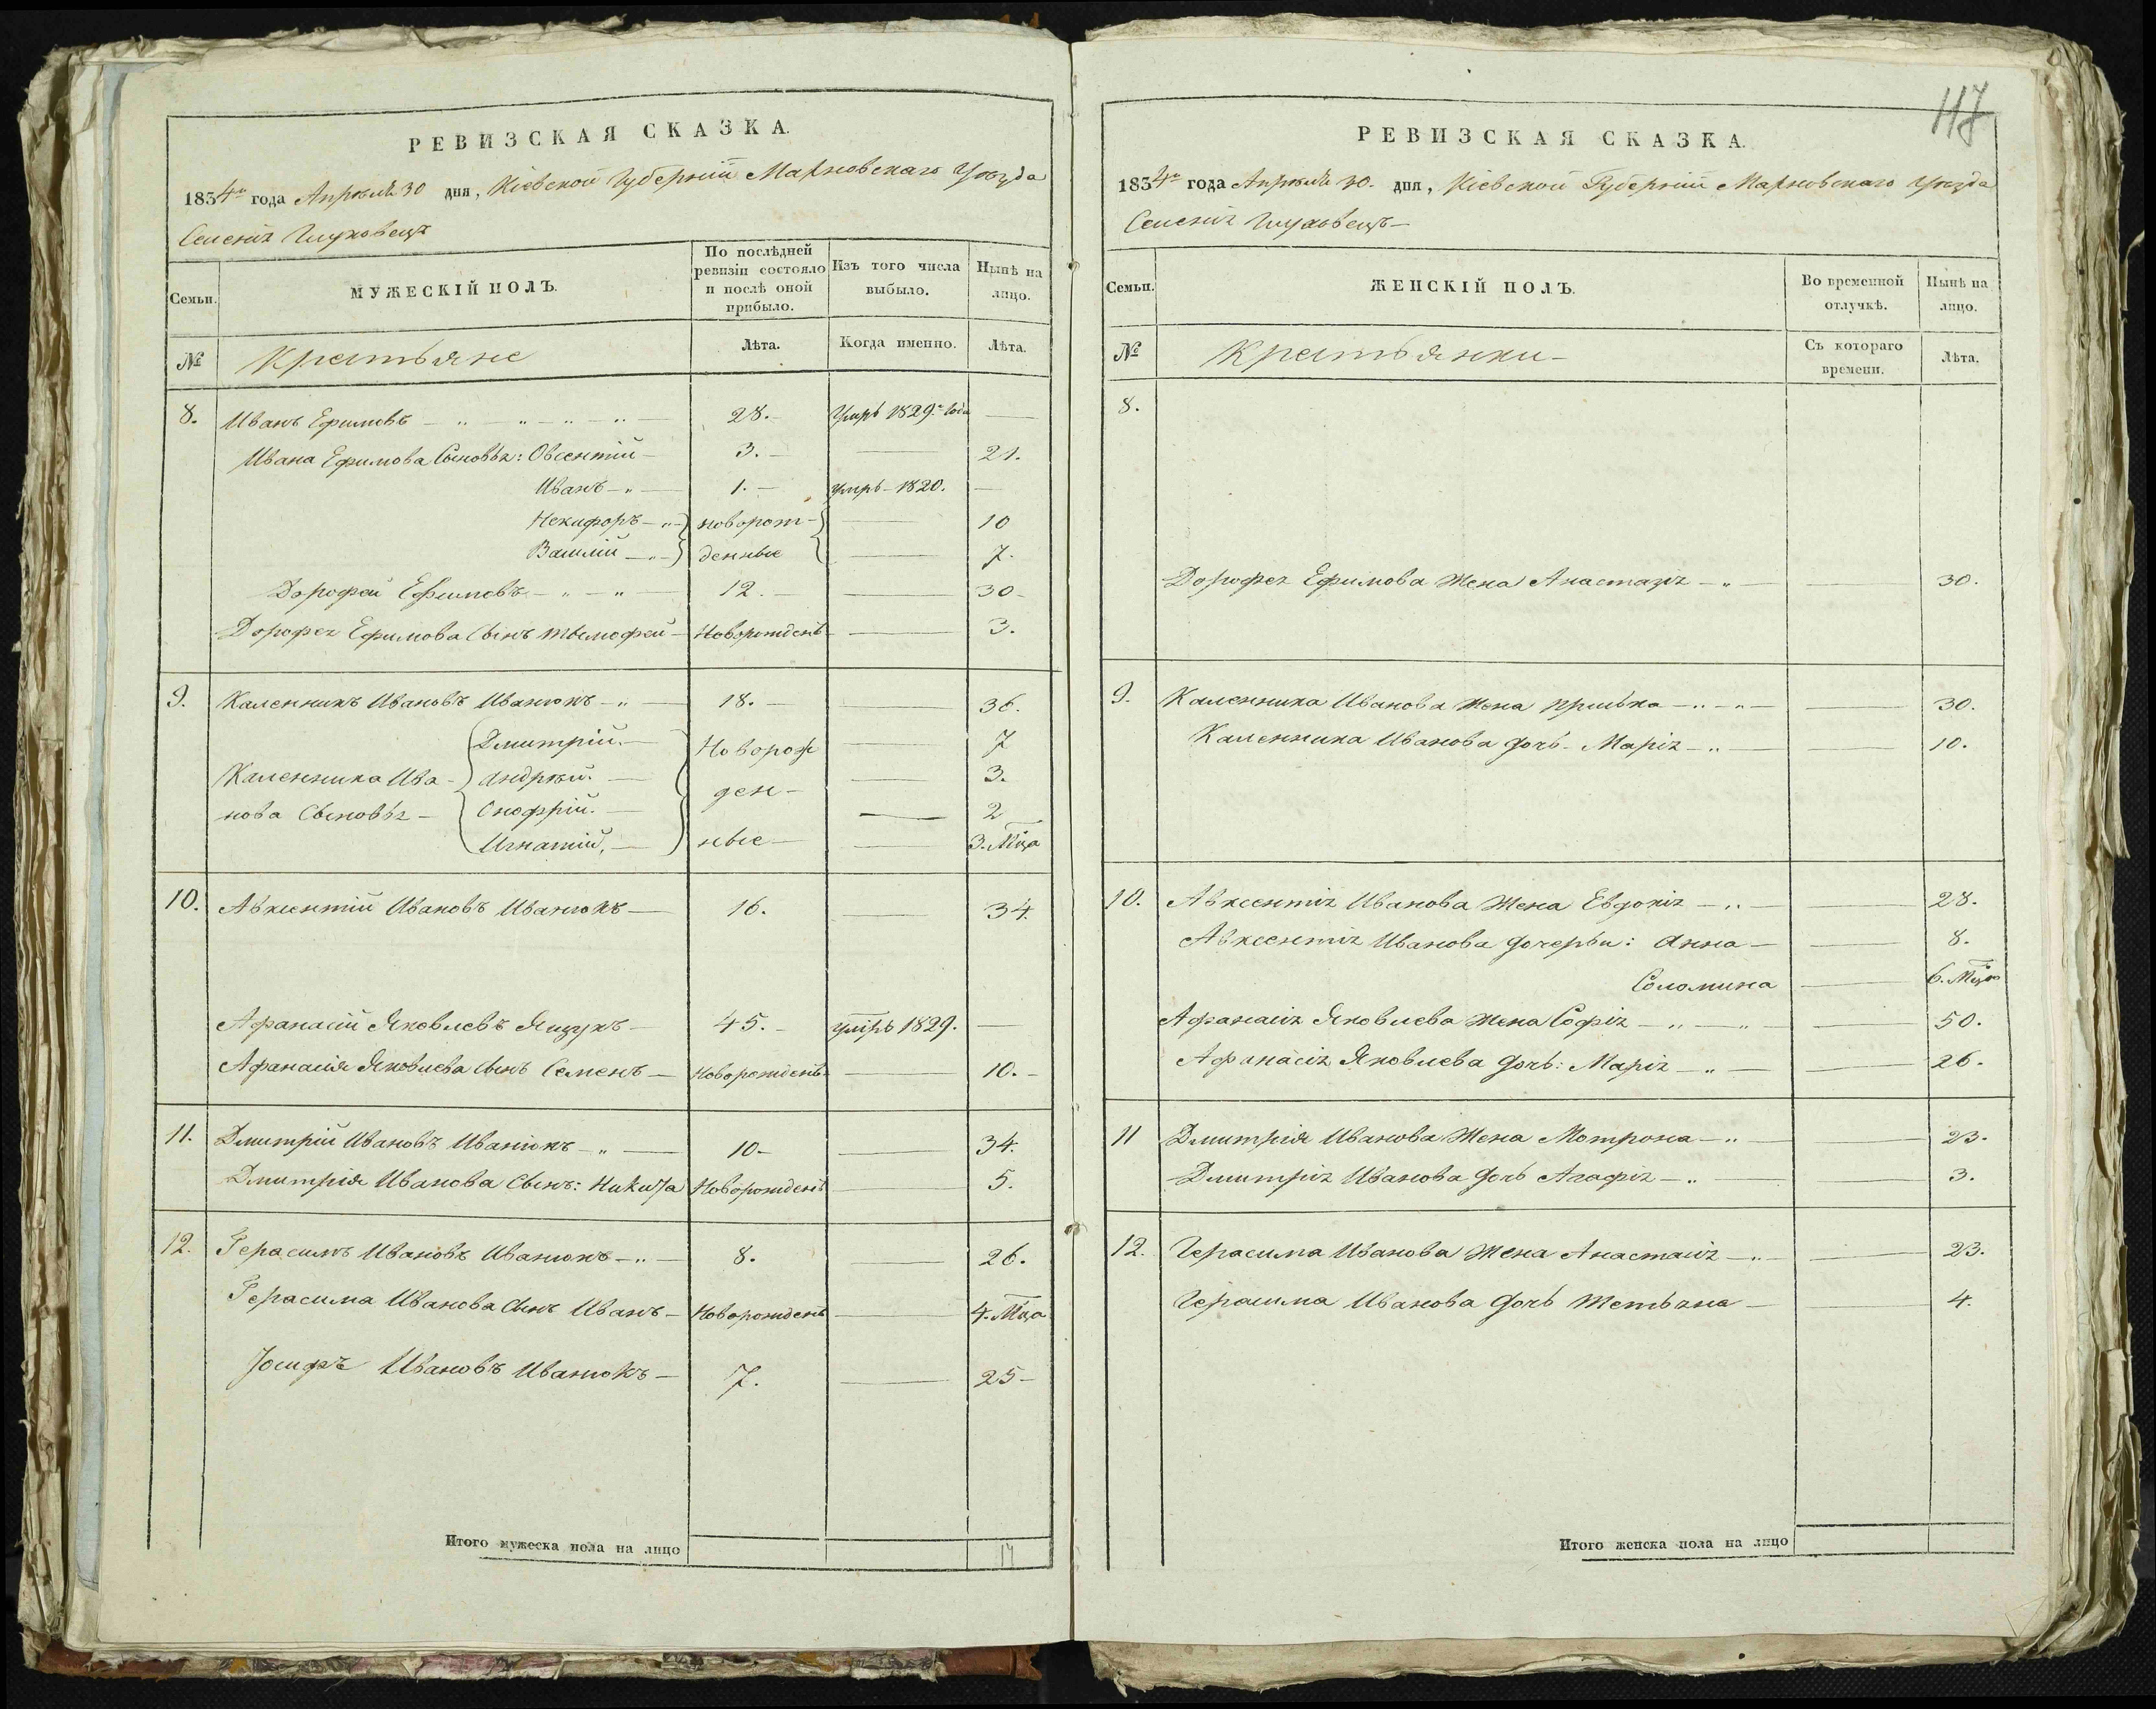 РЕВИЗСКАЯ СКАЗКА.
1834го года Апрѣля 30 дня, Кіевской Губерніи Махновскаго Уѣзда
Селенія Глуховецъ
Семьи.
МУЖЕСКІЙ ПОЛЪ.
По послѣдней ревизіи состояло и послѣ оной прибыло.
Изъ того числа выбыло.
Нынѣ на лицо.
№ Крестьяне Лѣта. Когда именно. Лѣта.
8. Иванъ Ефимовъ 28. Умръ 1829го года
Ивана Ефимова Сыновья: Овсентій 3. 21.
Иванъ 1. умръ 1820.
Некифоръ новорож- 10
Василій денные 7.
Дорофей Ефимовъ 12. 30
Дорофея Ефимова Сынъ Тымофей Новорожденъ 3.
9. Каленникъ Ивановъ Иванюкъ 18. 36.
Дмитрій. Новорож 7
Каленника Ива- Андрѣй. ден- 3.
нова Сыновья Онофрій. 2
Игнатій, ные 3. Мца
10. Авксентій Ивановъ Иванюкъ 16. 34.
Афанасій Яковлевъ Ящукъ 45. умръ 1829.
Афанасія Яковлева Сынъ Семенъ Новорожденъ 10.
11. Дмитрій Ивановъ Иванюкъ 10 34.
Дмитрія Иванова Сынъ: Никита Новорожденъ 5.
12. Герасимъ Ивановъ Иванюкъ 8. 26.
Герасима Иванова Сынъ Иванъ Новорожденъ 4. Мца
Іосифъ Ивановъ Иванюкъ 7. 25
Итого мужеска пола на лицо 17
117
РЕВИЗСКАЯ СКАЗКА.
1834го года Апрѣля 30. дня, Кіевской Губерніи Махновскаго Уѣзда
Селенія Глуховецъ
Семьи.
ЖЕНСКІЙ ПОЛЪ.
Во временной отлучкѣ.
Нынѣ на лицо.
№ Крестьянки Съ котораго времени. Лѣта.
8.
Дорофея Ефимова Жена Анастазія 30.
9. Каленника Иванова Жена 30.
Каленника Иванова дочь Марія 10.
10. Авксентія Иванова Жена Евдокія 28.
Авксентія Иванова дочерьи: Анна 8.
Соломина 6. Мцъ
Афанасія Яковлева Жена Софія 50.
Афанасія Яковлева дочь: Марія 26.
11 Дмитрія Иванова Жена Мотрона 23.
Дмитрія Иванова дочь Агафія 3.
12. Герасима Иванова Жена Анастасія 23.
Герасима Иванова дочь Тетьяна 4.
Итого женска пола на лицо